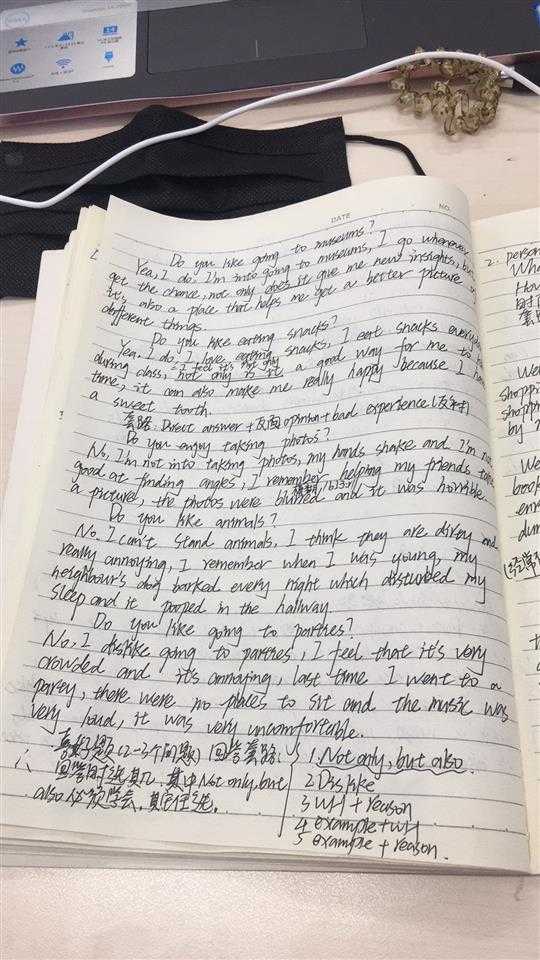 DATE
NO.
Do you like going to museums?
Yea, I do. I'm into going to museums, I go whenever I
get the chance, not only does it give me new insights, but
it's also a place that helps me get a better picture of
different things.
Do you like eating snacks?
Yea. I do. I love eating snacks, I eat snacks everyday
I feel it's not only
during class, not only is it a good way for me to
time, it can also make me really happy because I have
a sweet tooth.
套路: Direct answer + 反面 opinion + bad experience.
Do you enjoy taking photos?
No, I'm not into taking photos, my hands shake and I'm not
good at finding angles, I remember helping my friends take
a picture, the photos were blurred and it was horrible
模糊
Do you like animals?
No. I can't stand animals, I think they are dirty and
really annoying, I remember when I was young, my
neighbour's dog barked every night which disturded my
sleep and it pooped in the hallway.
Do you like going to parties?
No, I dislike going to parties, I feel that it's very
crowded and it's annoying, last time I went to a
party, there were no places to sit and the music was
very loud, it was very uncomfortable.
喜好题 (2-3个问题) 回答套路.
回答时 其中 Not only, but
also 必须学会,
1. Not only, but also.
2 Dislike
3 WH + reason
4 example + WH
5 example + reason.
2. person